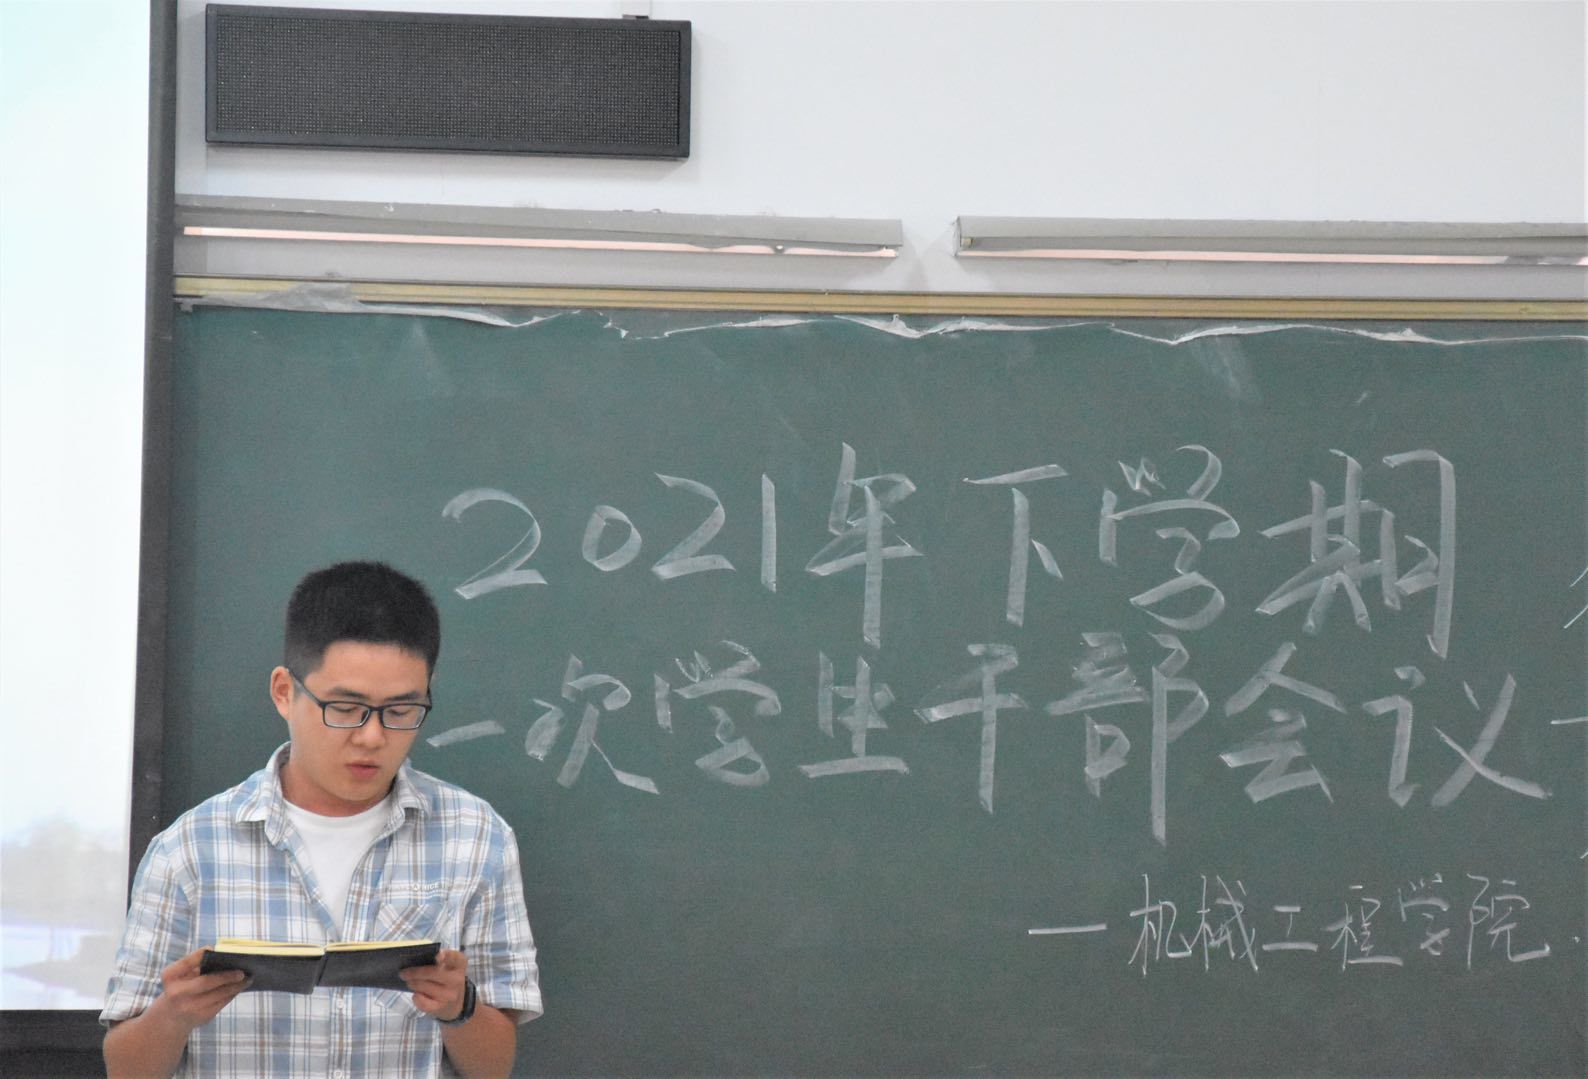 2021年下学期
一次学生干部会议
—机械工程学院